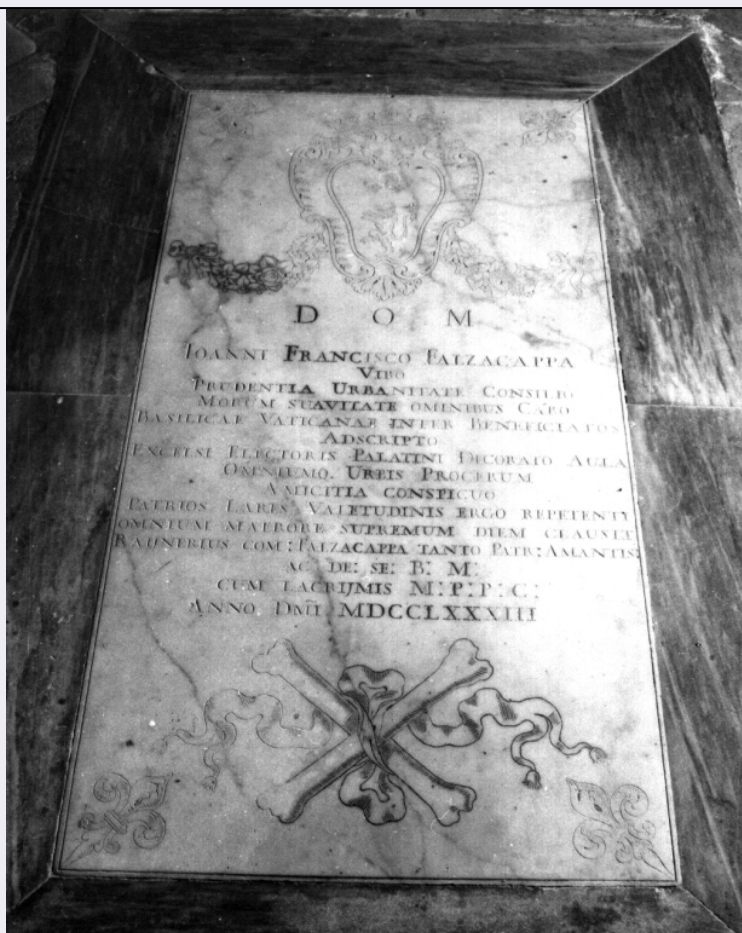 D O M
IOANNI FRANCISCO FALZACAPPA
VIRO
PRUDENTIA URBANITATE CONSILIO
MORUM SUAVITATE OMINIBUS CARO
BASILICAE VATICANAE INTER BENEFICIATOS
ADSCRIPTO
EXCELSI ELECTORIS PALATINI DECORATO AULA
OMNIUMQ. URBIS PROCERUM
AMICITIA CONSPICUO
PATRIOS LARES VALETUDINIS ERGO REPETENTI
OMNIUM MAERORE SUPREMUM DIEM CLAUSIT
RAINERIUS COM: FALZACAPPA TANTO PATR: AMANTIS:
AC DE: SE: B: M:
CUM LACRIJMIS M: P: P: C:
ANNO DMI MDCCLXXXIII